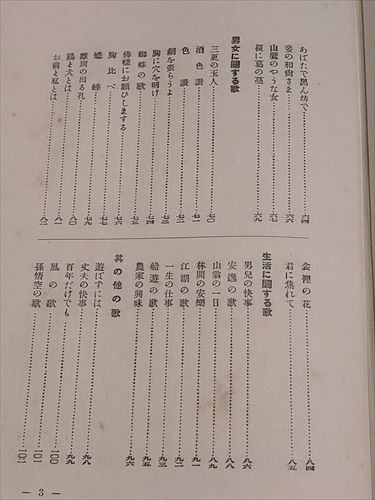 あばたで黒ん坊で……六四
妾の和尚さま……六六
山鷹のやうな女……六七
榎に葛の蔓……六九
男女に關する歌
三更の玉人……七〇
酒色讃……七一
色讃……七二
網を張らうよ……七三
胸に穴を明け……七四
蜘蛛の歌……七五
佛樣にお願ひしまする……七六
胸比べ……七七
蟋蟀……七九
雌男の出る孔……八〇
鷄と犬とは……八一
お前と私とは……八二
奩裡の花……八四
君に焦れて……八五
生活に關する歌
男兒の快事……八六
安逸の歌……八八
山翁の一日……八九
林間の安樂……九一
江湖の歌……九二
一生の仕事……九三
船遊の歌……九五
農家の興味……九六
其の他の歌
遊ばずには……九八
丈夫の快事……九九
百年だけでも……九九
風の歌……一〇〇
孫悟空の歌……一〇一
— 3 —